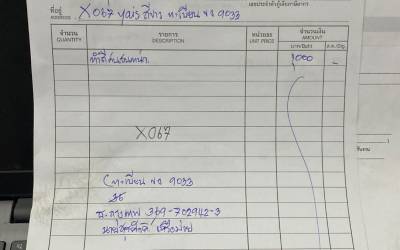 ที่อยู่ ADDRESS X067 yaris สีขาว ทะเบียน ขง 9033
เลขประจำตัวผู้เสียภาษีอากร
จำนวน QUANTITY รายการ DESCRIPTION หน่วยละ UNIT PRICE จำนวนเงิน AMOUNT
บาท/Baht ส.ต./Stg.
ทำสีกันชนหน้า 1,000 -
X067
(ทะเบียน ขง 9033
ธ.กรุงเทพ 369-702942-3